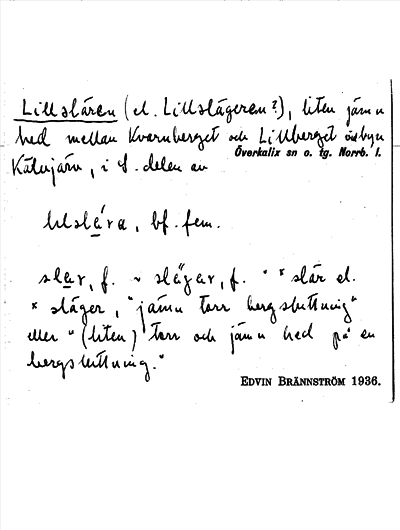 Lillslären (el. Lillslägeren?), liten jämn
hed mellan Kvarnberget och Lillberget i
Överkalix sn o. tg. Norrb. l.
i S. delen av
lilslára, bf. fem.
slar, f. ~ slä̆gar, f. " × slär el.
× släger, "jämn torr bergsluttning"
eller "(liten) torr och jämn hed på en
bergsluttning."
EDVIN BRÄNNSTRÖM 1936.